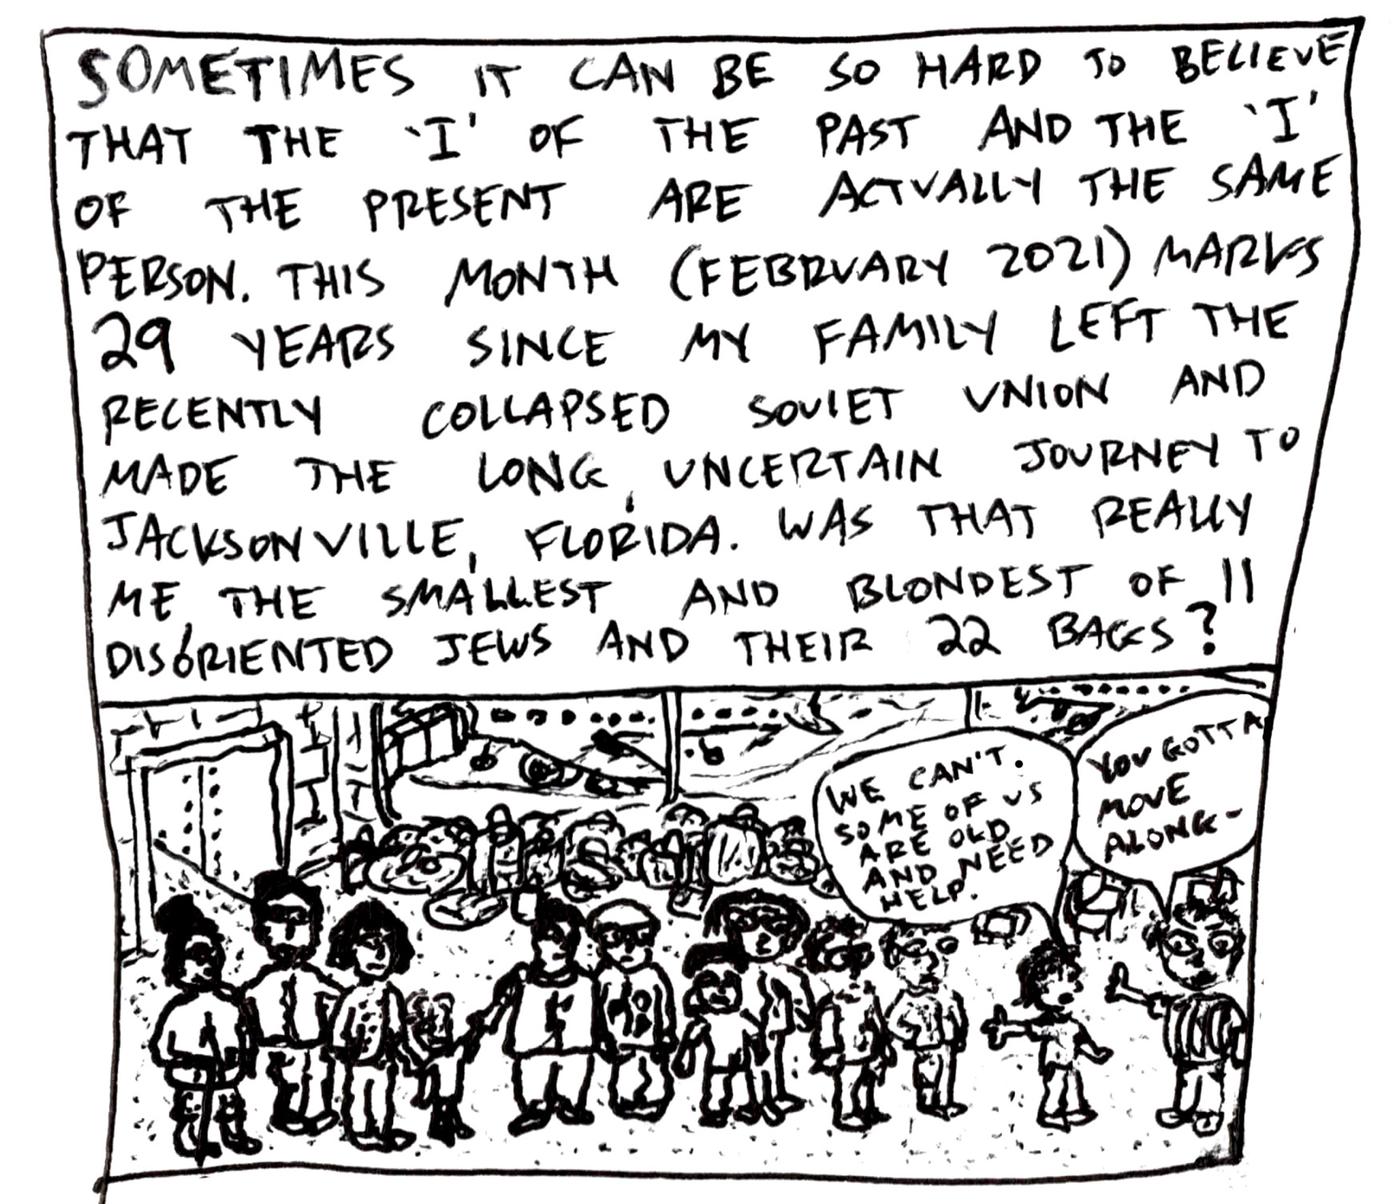 SOMETIMES IT CAN BE SO HARD TO BELIEVE
THAT THE 'I' OF THE PAST AND THE 'I'
OF THE PRESENT ARE ACTUALLY THE SAME
PERSON. THIS MONTH (FEBRUARY 2021) MARKS
29 YEARS SINCE MY FAMILY LEFT THE
RECENTLY COLLAPSED SOVIET UNION AND
MADE THE LONG, UNCERTAIN JOURNEY TO
JACKSONVILLE, FLORIDA. WAS THAT REALLY
ME, THE SMALLEST AND BLONDEST OF 11
DISORIENTED JEWS AND THEIR 22 BAGS?
WE CAN'T.
SOME OF US
ARE OLD
AND NEED
HELP.
YOU GOTTA
MOVE
ALONG-